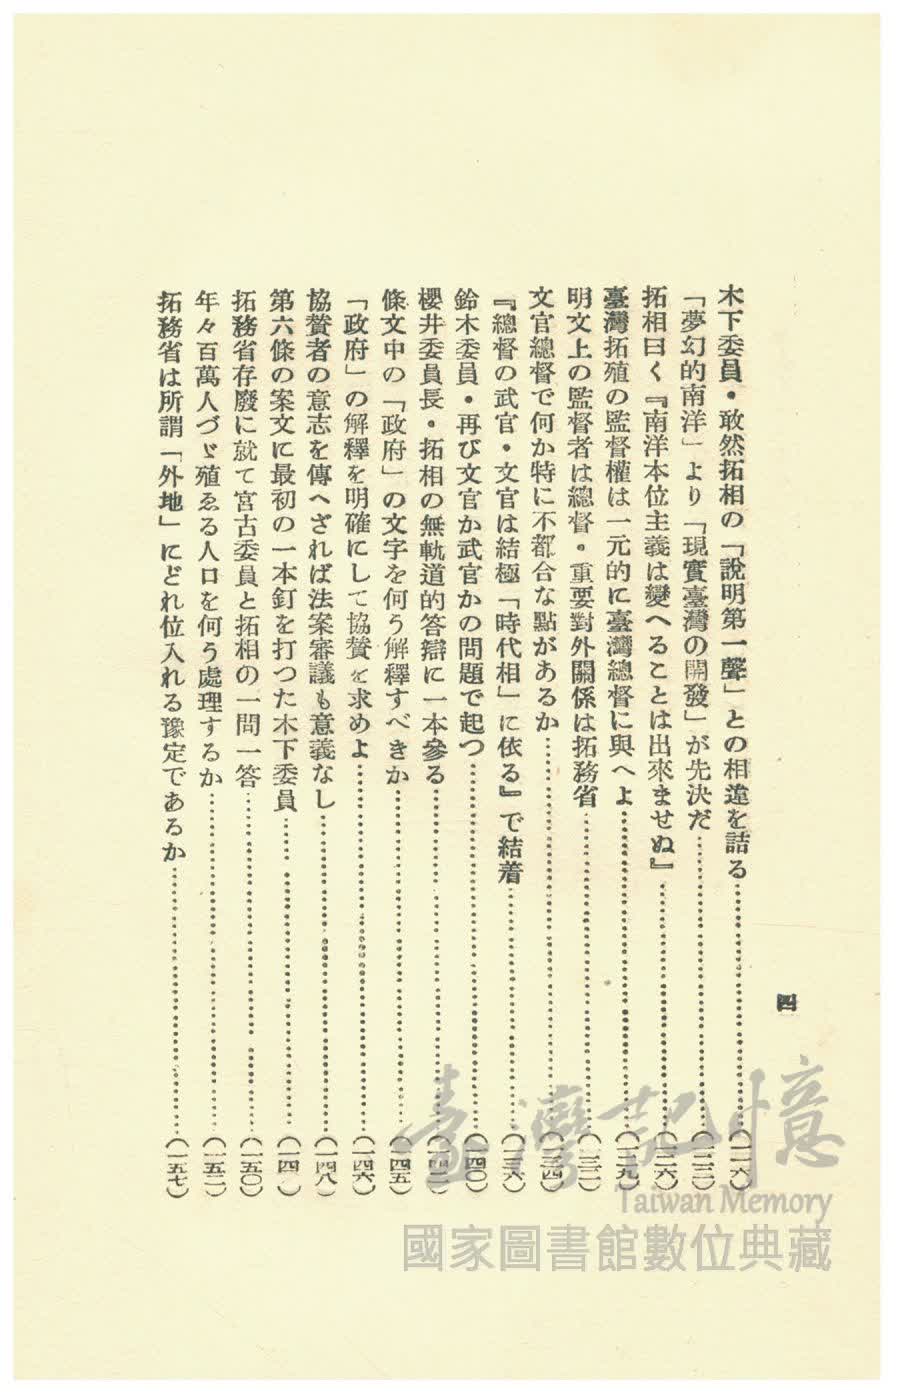 四
木下委員・敢然拓相の「說明第一聲」との相違を詰る……………(一一六)
「夢幻的南洋」より「現實臺灣の開發」が先決だ……………(一二二)
拓相曰く『南洋本位主義は變へることは出來ませぬ』……………(一二六)
臺灣拓殖の監督權は一元的に臺灣總督に與へよ……………(一二九)
明文上の監督者は總督。重要對外關係は拓務省……………(一三二)
文官總督で何か特に不都合な點があるか……………(一三四)
『總督の武官・文官は結極「時代相」に依る』で結着……………(一三六)
鈴木委員・再び文官か武官かの問題で起つ……………(一四〇)
櫻井委員長・拓相の無軌道的答辯に一本參る……………
條文中の「政府」の文字を何う解釋すべきか……………(一四五)
「政府」の解釋を明確にして協贊を求めよ……………(一四六)
協贊者の意志を傳へざれば法案審議も意義なし……………(一四八)
第六條の案文に最初の一本釘を打つた木下委員……………
拓務省存廢に就て宮古委員と拓相の一問一答……………(一五〇)
年々百萬人づゝ殖ゑる人口を何う處理するか……………(一五二)
拓務省は所謂「外地」にどれ位入れる豫定であるか……………(一五七)
臺灣記憶
Taiwan Memory
國家圖書館數位典藏